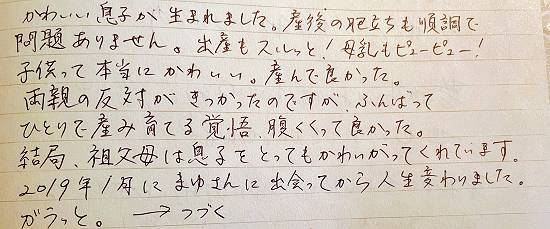 かわいい息子が生まれました。産後の肥立ちも順調で
問題ありません。出産もスルッと!母乳もピューピュー!
子供って本当にかわいい。産んで良かった。
両親の反対がきつかったのですが、ふんばって
ひとりで産み育てる覚悟、腹くくって良かった。
結局、祖父母は息子をとってもかわいがってくれています。
2019年1月にまゆさんに出会ってから人生変わりました。
ガラッと。→つづく